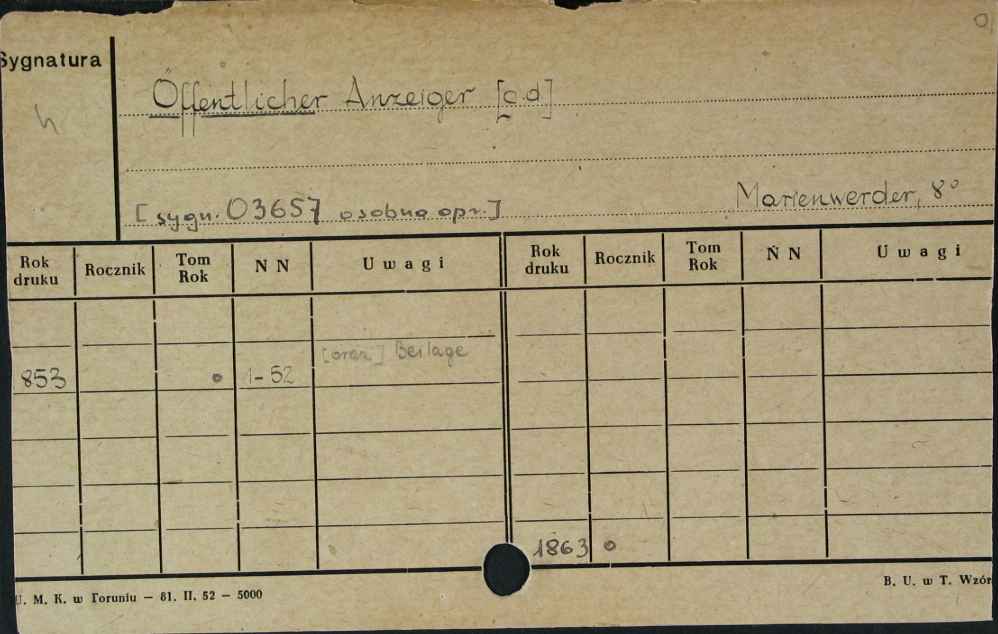 Sygnatura
Öffentlicher Anzeiger [c.d]
[sygn. 03657 osobna opr.] Marienwerder, 8°
Rok druku Rocznik Tom Rok N N Uwagi Rok druku Rocznik Tom Rok N N Uwagi
[oraz] Beilage
853 1-52
1863
U. M. K. w Toruniu — 81. II. 52 — 5000 B. U. w T. Wzór